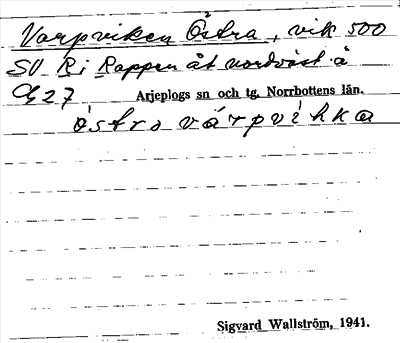 Varpviken Östra, vik 500
SV R i Rappen åt nordväst å
G 27 Arjeplogs sn och tg. Norrbottens län.
östra várpvìkka
Sigvard Wallström, 1941.